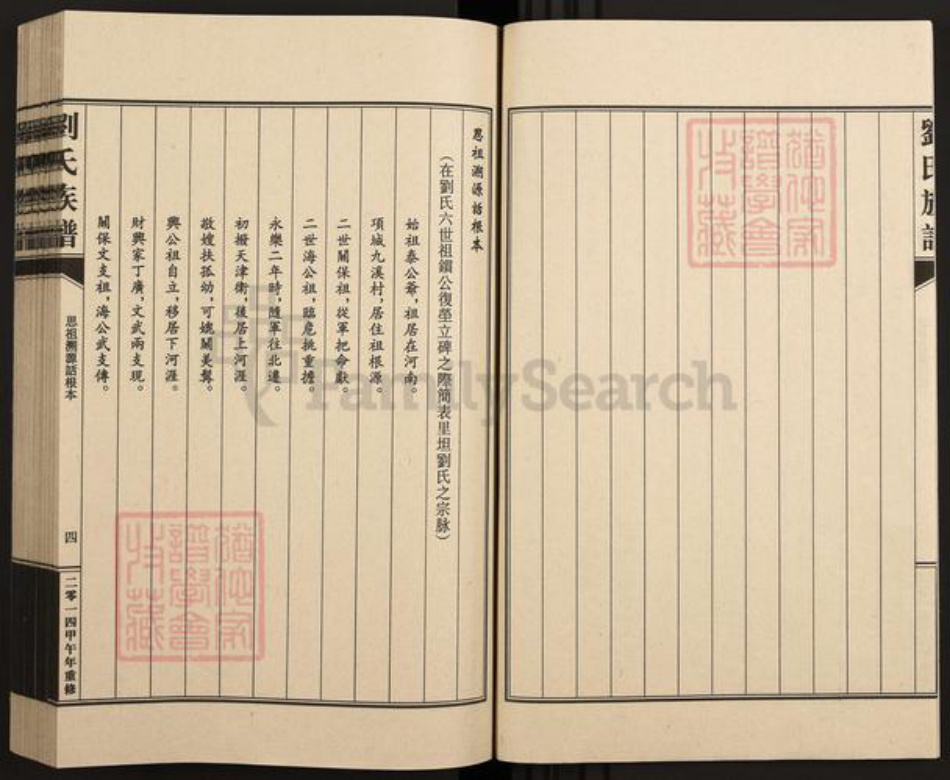 劉氏族譜
思祖溯源話根本
(在劉氏六世祖鎖公復塋立碑之際簡表里坦劉氏之宗脉)
始祖泰公爺,祖居在河南。
項城九溪村,居住祖根源。
二世關保祖,從軍把命獻。
二世海公祖,臨危挑重擔。
永樂二年時,隨軍往北遷。
初撥天津衛,後居上河涯。
敬嫂扶孤幼,可媲關美髯。
興公祖自立,移居下河涯。
財興家丁廣,文武兩支現。
關保文支祖,海公武支傳。
劉氏族譜
思祖溯源話根本
四
二零一四甲午年重修
FamilySearch